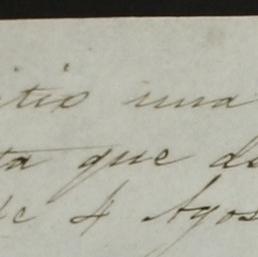 itio una
ta que de
de 4 Agos